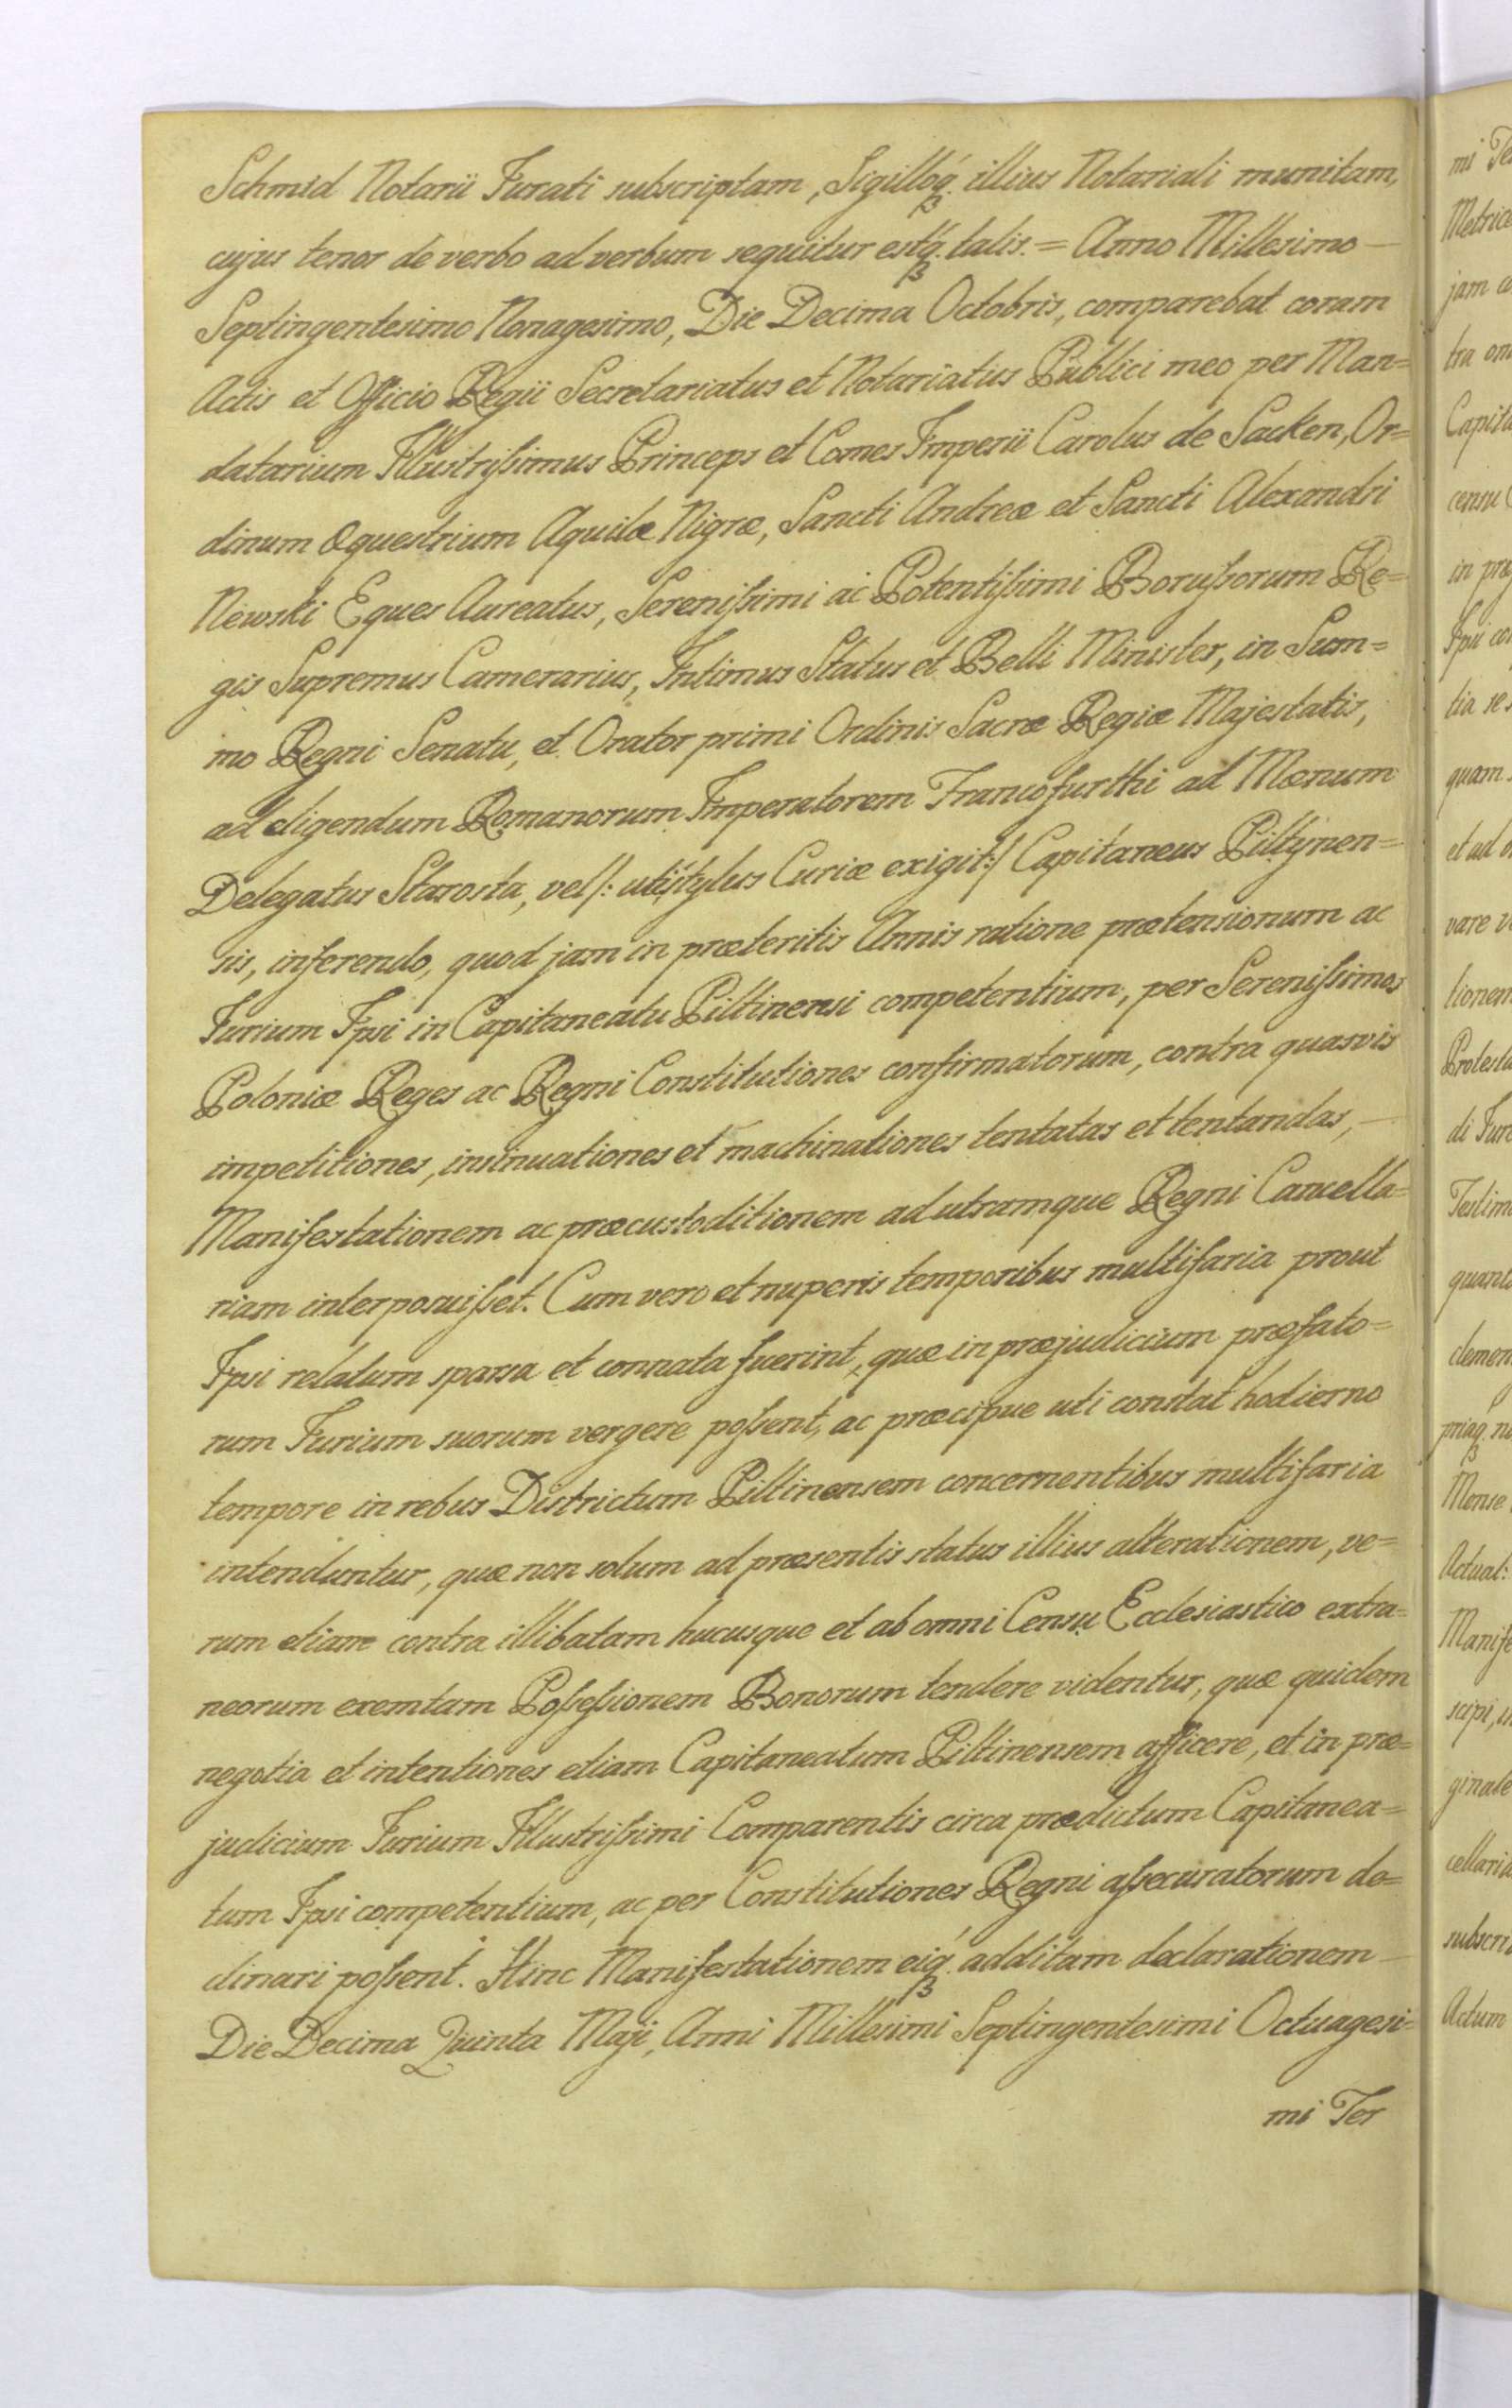 Schmid Notarii Jurati subscriptam, Sigilloq́ꝫ illius Notariali munitam,
cujus tenor de verbo ad verbum sequitur estq́ꝫ talis. = Anno Millesimo —
Septingentesimo Nonagesimo, Die Decima Octobris, comparebat coram
Actis et Officio Regii Secretariatus et Notariatus Publici meo per Man=
datarium Illustrissimus Princeps et Comes Imperii Carolus de Sacken, Or=
dinum Æquestrium Aquilæ Nigræ, Sancti Andreæ et Sancti Alexandri
Newski Eques Aureatus, Serenissimi ac Potentissimi Borussorum Re=
gis Supremus Camerarius, Intimus Status et Belli Minister, in Sum=
mo Regni Senatu, et Orator primi Ordinis Sacræ Regiæ Majestatis,
ad eligendum Romanorum Imperatorem Francofurthi ad Mœnum
Delegatus Starosta, vel /: uti stylus Curiæ exigit :/ Capitaneus Piltynen=
sis, inferendo, quod jam in præteritis Annis ratione prætensionum ac
Jurium Ipsi in Capitaneatu Piltinensi competentium, per Serenissimos
Poloniæ Reges ac Regni Constitutiones confirmatorum, contra quasvis
impetitiones, insinuationes et machinationes tentatas et tentandas, —
Manifestationem ac præcustoditionem ad utramque Regni Cancella=
riam interposuisset. Cum vero et nuperis temporibus multifaria prout
Ipsi relatum sparsa et connata fuerint, quæ in præjudicium præfato=
rum Jurium suorum vergere possent, ac præcipue uti constat hodierno
tempore in rebus Districtum Piltinensem concernentibus multifaria
intenduntur, quæ non solum ad præsentis status illius alterationem, ve=
rum etiam contra illibatam hucusque et ab omni Censu Ecclesiastico extra=
neorum exemtam Possessionem Bonorum tendere videntur, quæ quidem
negotia et intentiones etiam Capitaneatum Piltinensem afficere, et in præ=
judicium Jurium Illustrissimi Comparentis circa prædictum Capitanea=
tum Ipsi competentium, ac per Constitutiones Regni assecuratorum de=
clinari possent. Hinc Manifestationem eiq́ꝫ additam declarationem —
Die Decima Quinta Maji, Anni Millesimi Septingentesimi Octuagesi=
mi Ter
mi Te
Metrice
jam a
tra om
Capita
censu
in præ
Ipsi co
tia se
quam
et ad o
vare v
tionem
Protesta
di Jur
Testim
quant
clemen
priaqꝫ nu
Mense
Actual:
Manife
scipi, in
ginale
cellaria
subscri
Actum